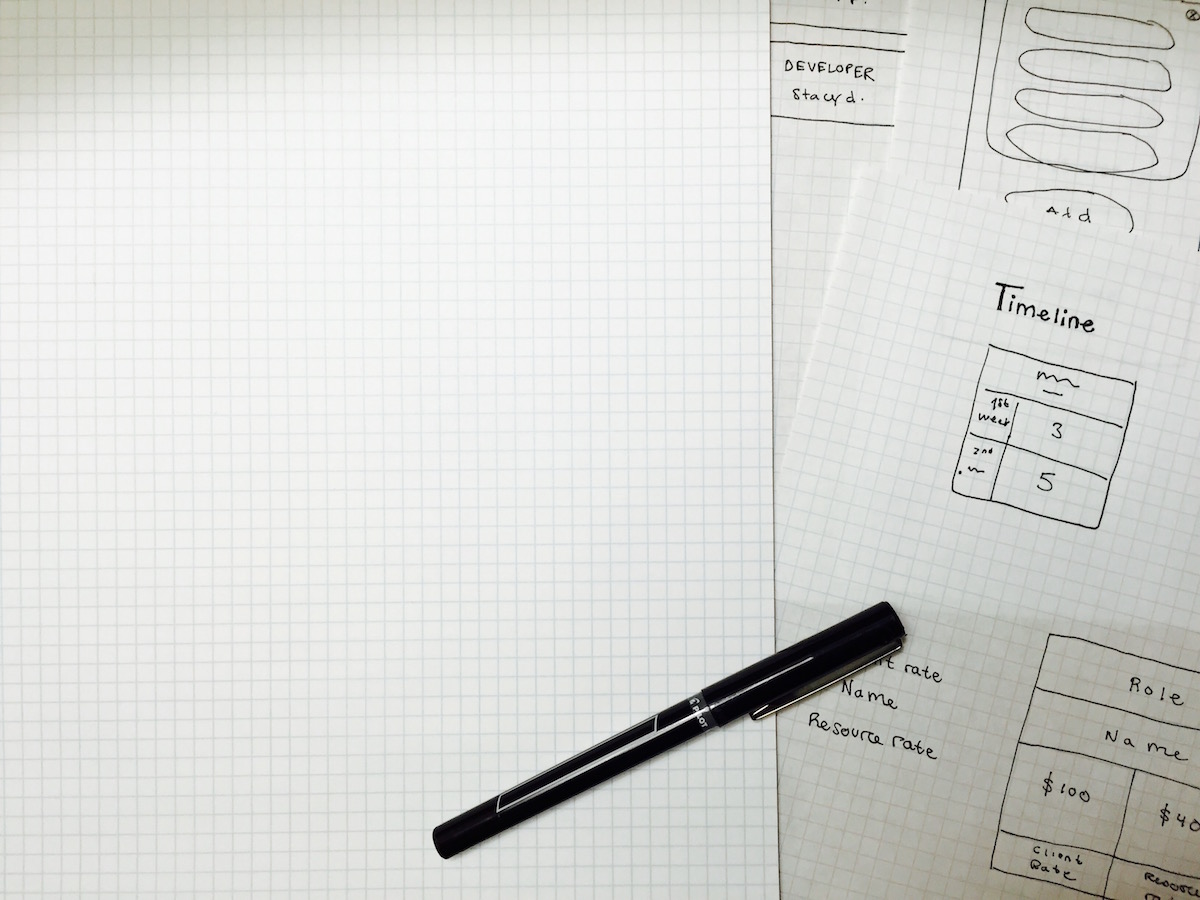 DEVELOPER
Stacy d.
Add
Timeline
1st
week
3
2nd
5
rate
Name
Resource rate
PILOT
Role
Name
$100
$40
Client
Rate